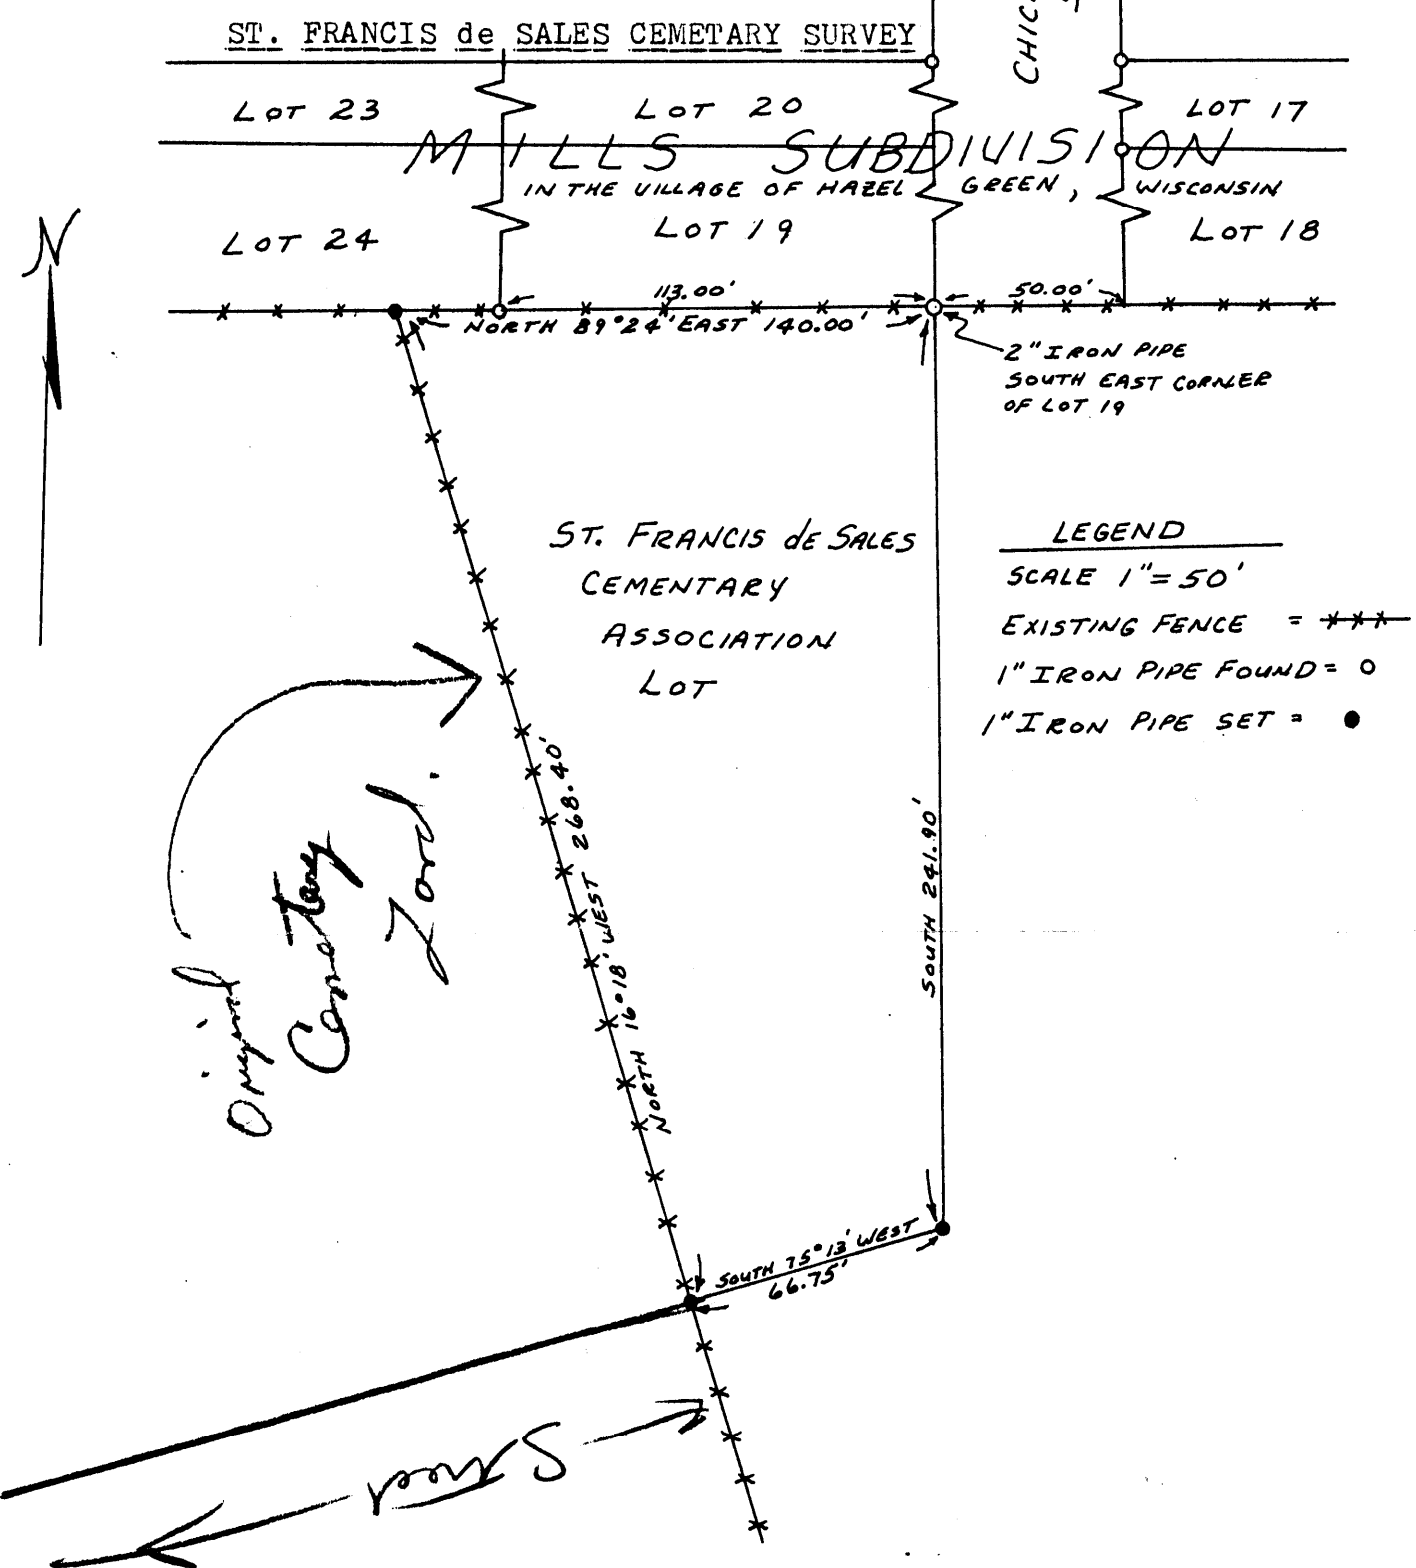 ST. FRANCIS de SALES CEMETARY SURVEY
CHIC
LOT 23
LOT 20
LOT 17
MILLS SUBDIVISION
IN THE VILLAGE OF HAZEL GREEN, WISCONSIN
N
LOT 24
LOT 19
LOT 18
113.00'
50.00'
NORTH 89°24' EAST 140.00'
2" IRON PIPE
SOUTH EAST CORNER
OF LOT 19
ST. FRANCIS de SALES
CEMENTARY
ASSOCIATION
LOT
LEGEND
SCALE 1"=50'
EXISTING FENCE =
1" IRON PIPE FOUND =
1" IRON PIPE SET =
NORTH 16°18' WEST 268.40'
SOUTH 241.90'
Original
SOUTH 75°13' WEST
66.75'
Street